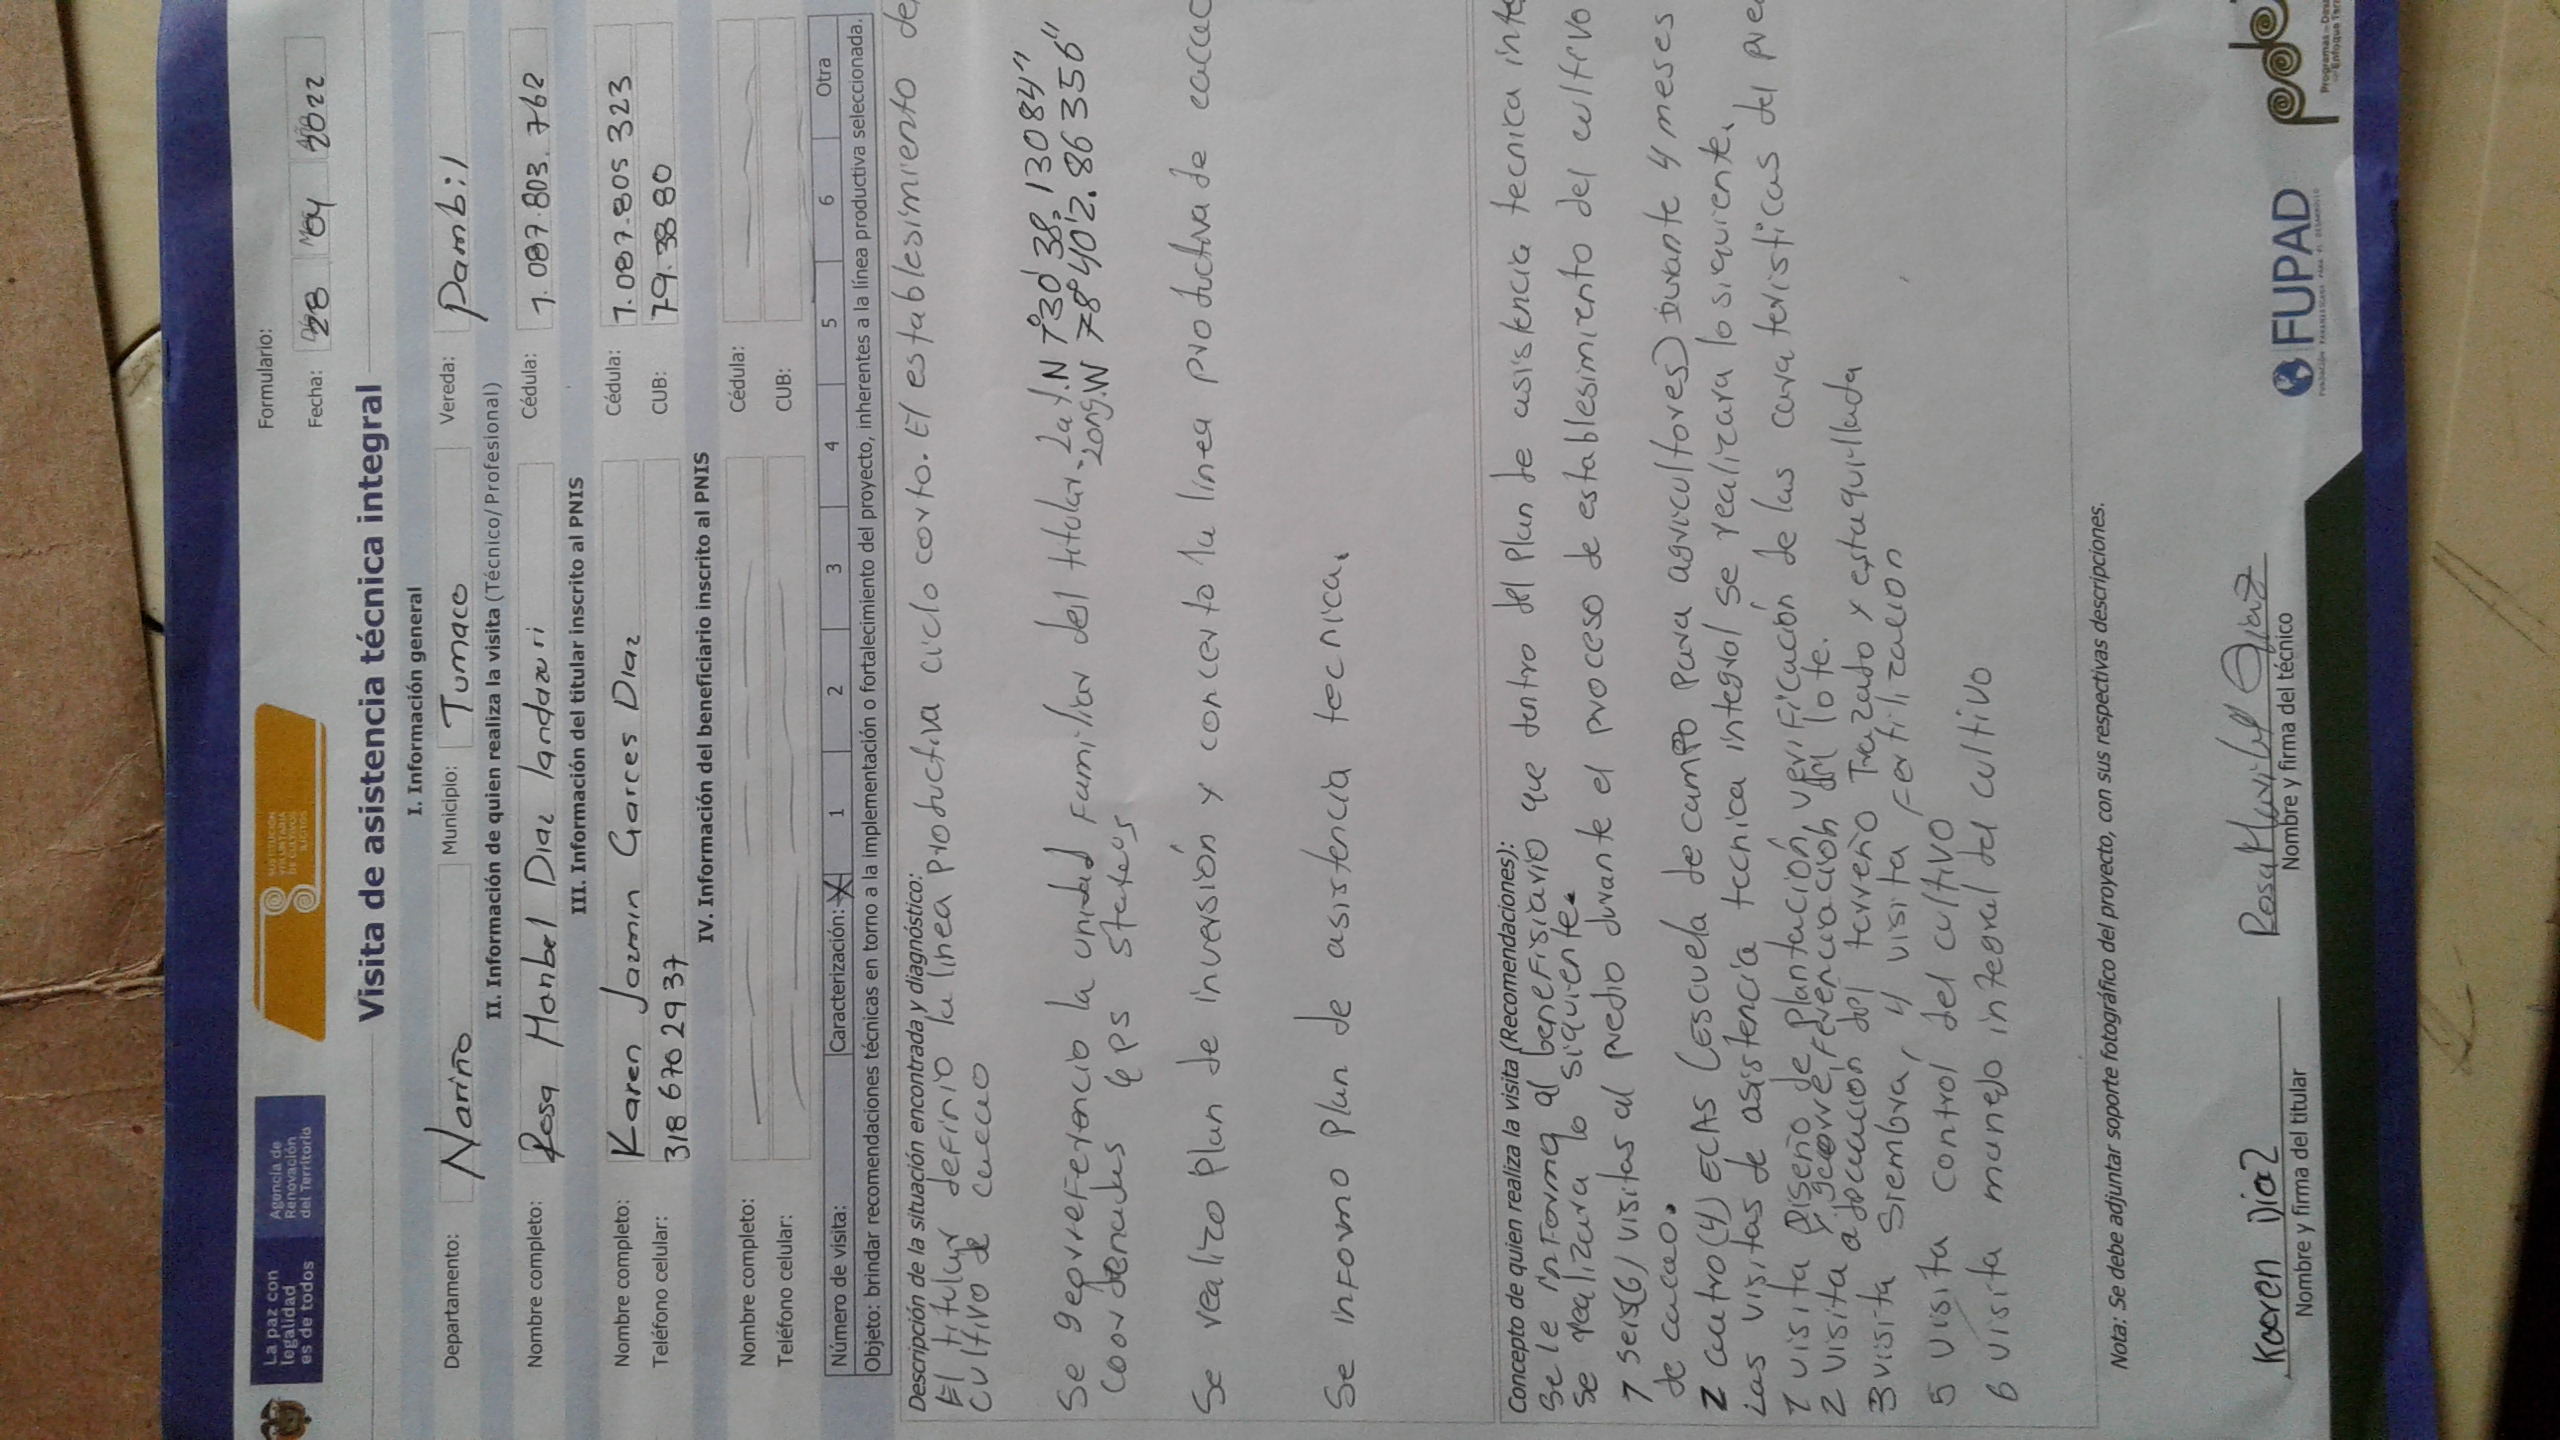 La paz con
legalidad
es de todos
Agencia de
Renovación
del Territorio
SUSTITUCIÓN
VOLUNTARIA
DE CULTIVOS
ILÍCITOS
Formulario:
Fecha: 28 04 2022
Visita de asistencia técnica integral
I. Información general
Departamento: Nariño Municipio: Tumaco Vereda: Pambil
II. Información de quien realiza la visita (Técnico/ Profesional)
Nombre completo: Rosa Maribel Diaz landazuri Cédula: 1.087.803.762
III. Información del titular inscrito al PNIS
Nombre completo: Karen Jazmin Garces Diaz Cédula: 1.087.805 323
Teléfono celular: 318 670 29 37 CUB: 79.38 80
IV. Información del beneficiario inscrito al PNIS
Nombre completo: Cédula:
Teléfono celular: CUB:
Número de visita: Caracterización: X 1 2 3 4 5 6 Otra
Objeto: brindar recomendaciones técnicas en torno a la implementación o fortalecimiento del proyecto, inherentes a la línea productiva seleccionada.
Descripción de la situación encontrada y diagnóstico:
El titular definio la linea productiva ciclo corto. El establesimiento de
cultivo de cacao
Se georreferencio la unidad Familiar del titular. Lat.N 1°30' 38.13084"
coordenadas gps Long.W 78°40'2.86356"
Se realizo plan de inversión y concerto la linea productiva de cacao
Se informo plan de asistencia tecnica.
Concepto de quien realiza la visita (Recomendaciones):
Se le informa al benefisiario que dentro del plan de asistencia tecnica inte
se realizara lo siquiente.
1 seis(6) visitas al predio durante el proceso de establesimiento del cultivo
de cacao.
2 cuatro (4) ECAS (Escuela de campo para agricultores) Durante 4 meses
Las visitas de asistencia tecnica integral se realizara lo siquiente.
1 visita Diseño de Plantación, verificación de las caracteristicas del pre
2 visita y georreferenciación del lote.
3 visita adecuacion del terreno Trazado y estaquillada
Siembra, 4 visita Fertilizacion
5 visita control del cultivo
6 visita manejo integral del cultivo
Nota: Se debe adjuntar soporte fotográfico del proyecto, con sus respectivas descripciones.
Karen Diaz
Nombre y firma del titular
Rosa Maribel Diaz
Nombre y firma del técnico
FUPAD
FUNDACIÓN PANAMERICANA PARA EL DESARROLLO